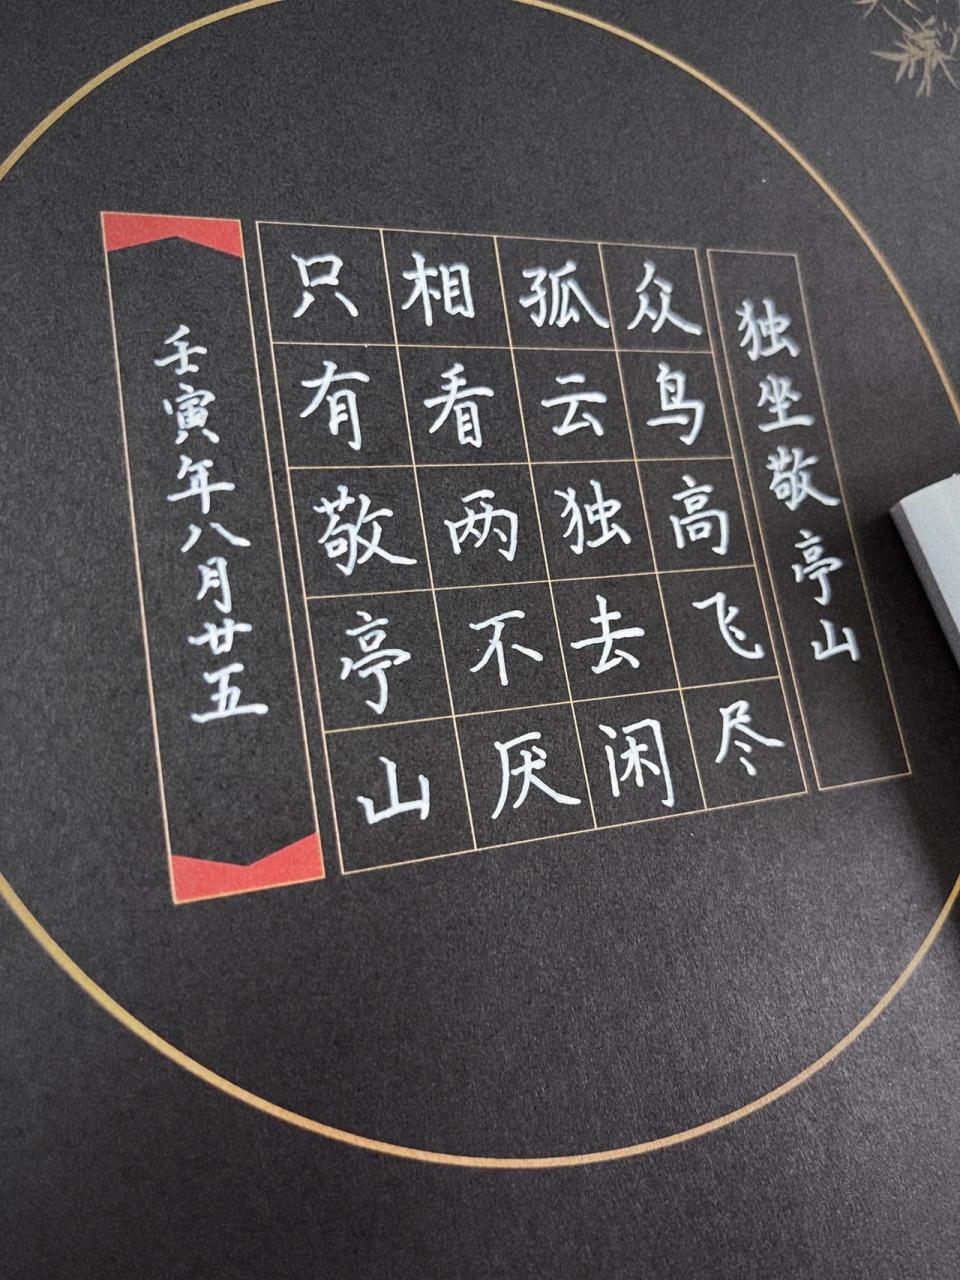 独坐敬亭山
众鸟高飞尽
孤云独去闲
相看两不厌
只有敬亭山
壬寅年八月廿五